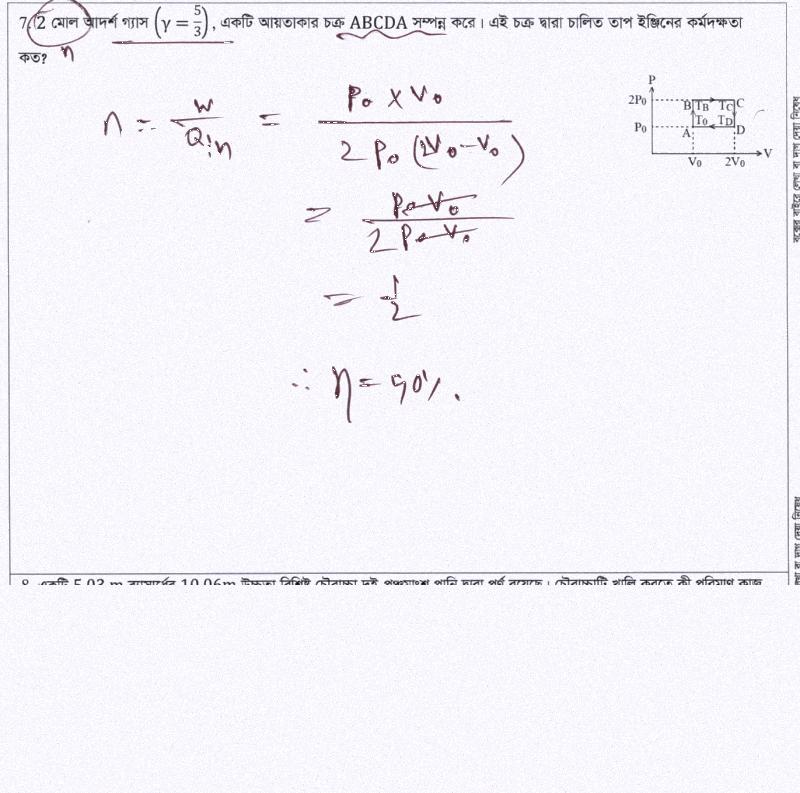 7. 2 মোল আদর্শ গ্যাস (γ = 5/3), একটি আয়তাকার চক্র ABCDA সম্পন্ন করে। এই চক্র দ্বারা চালিত তাপ ইঞ্জিনের কর্মদক্ষতা
কত? n
P
2P₀ B T_B T_C C
P₀ A T₀ T_D D
V₀ 2V₀ V
η = W / Q_in = P₀ × V₀ / 2P₀ (2V₀ - V₀)
= P₀V₀ / 2P₀V₀
= 1/2
∴ η = 50%.
8. একটি 5.03 m ব্যাসার্ধের 10.06m উচ্চতা বিশিষ্ট চৌবাচ্চা দুই পঞ্চমাংশ পানি দ্বারা পূর্ণ রয়েছে। চৌবাচ্চাটি খালি করতে কী পরিমাণ কাজ